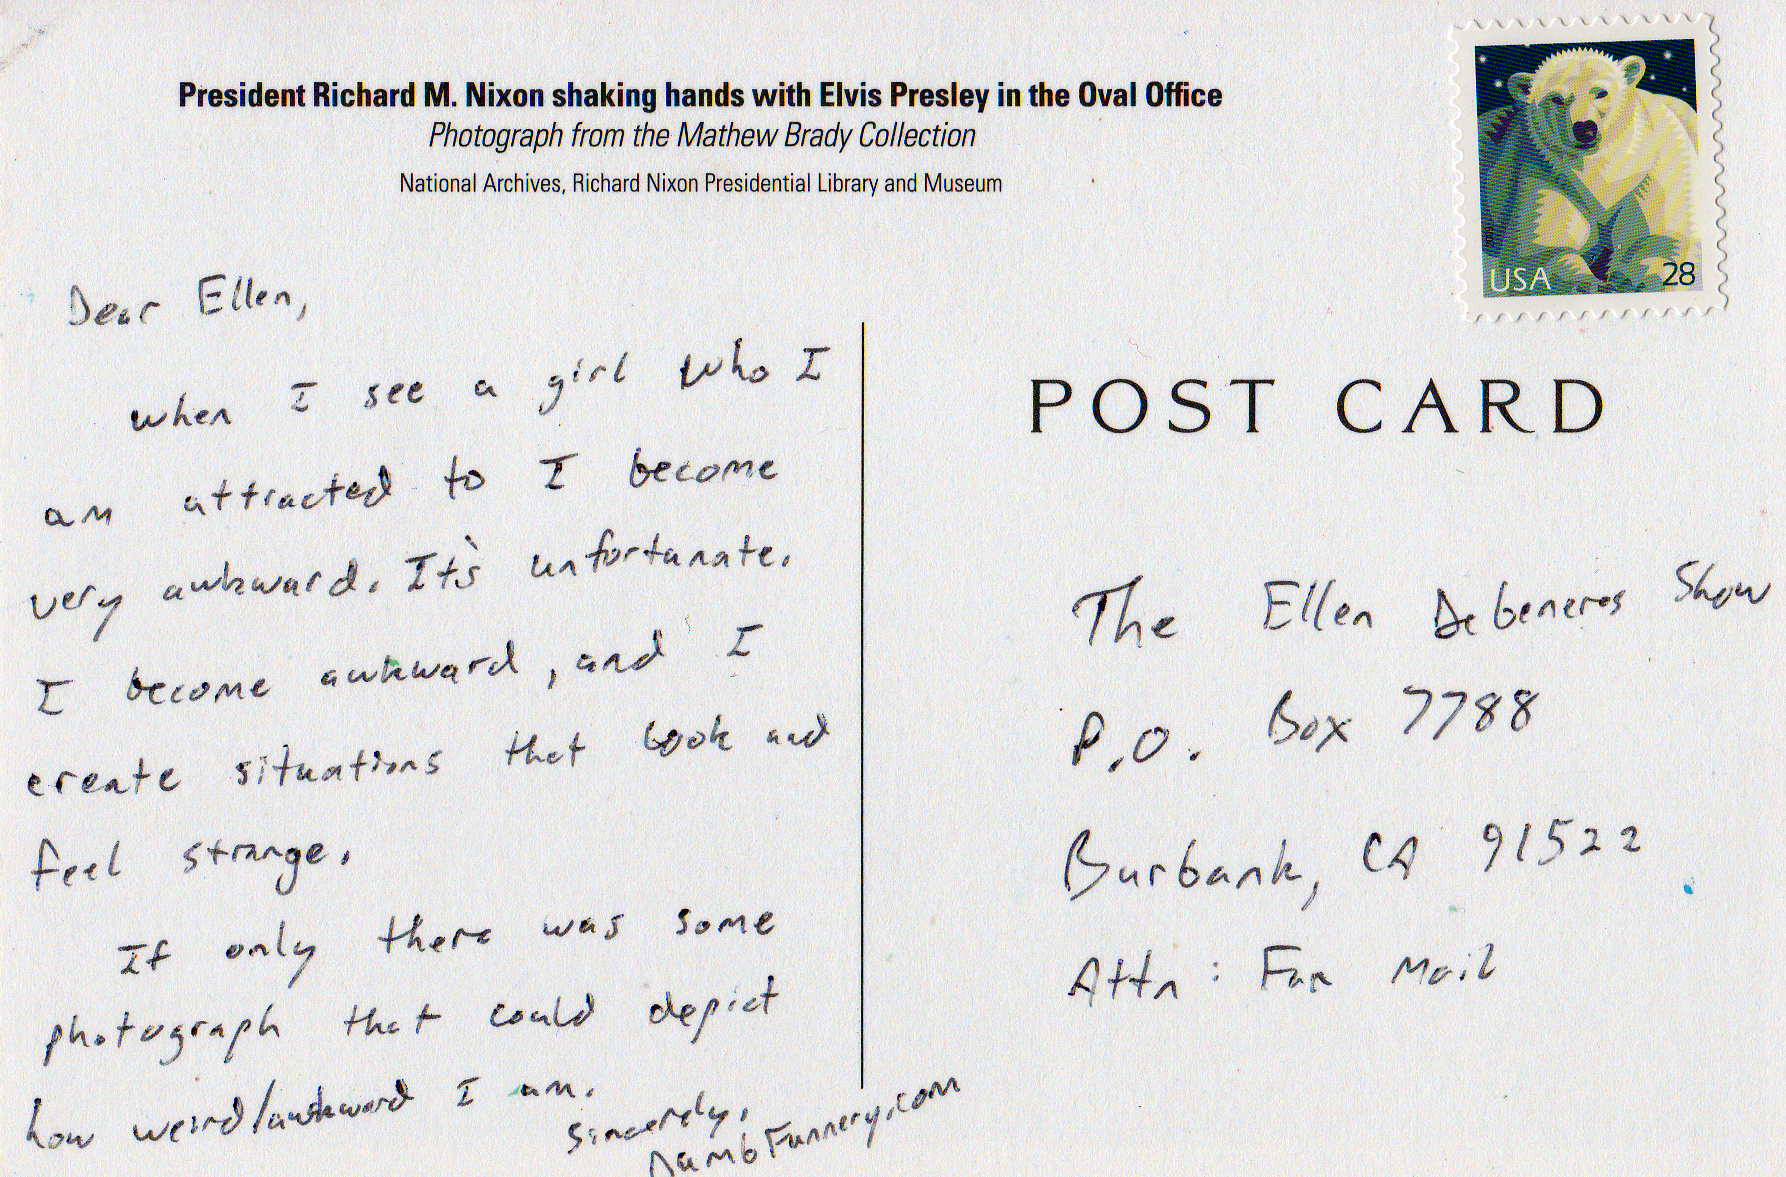 President Richard M. Nixon shaking hands with Elvis Presley in the Oval Office
Photograph from the Mathew Brady Collection
National Archives, Richard Nixon Presidential Library and Museum
USA
28
Dear Ellen,
when I see a girl who I
am attracted to I become
very awkward. It's unfortunate.
I become awkward, and I
create situations that look and
feel strange.
If only there was some
photograph that could depict
how weird/awkward I am.
Sincerely,
DumbFunnery.com
POST CARD
The Ellen DeGeneres Show
P.O. Box 7788
Burbank, CA 91522
Attn: Fan Mail